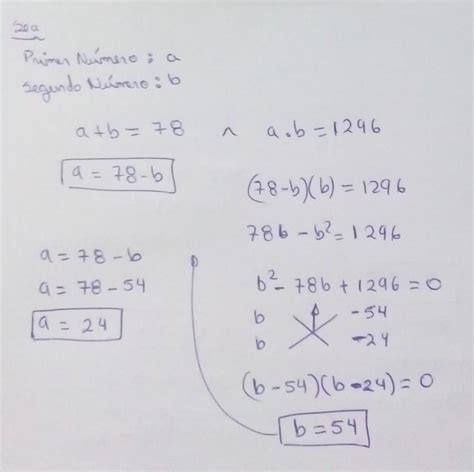 Primer Número : a
Segundo Número : b
a+b = 78 ∧ a.b = 1296
a = 78-b
(78-b)(b) = 1296
78b - b² = 1296
b² - 78b + 1296 = 0
b -54
b -24
(b - 54)(b - 24) = 0
b = 54
a = 78 - b
a = 78 - 54
a = 24